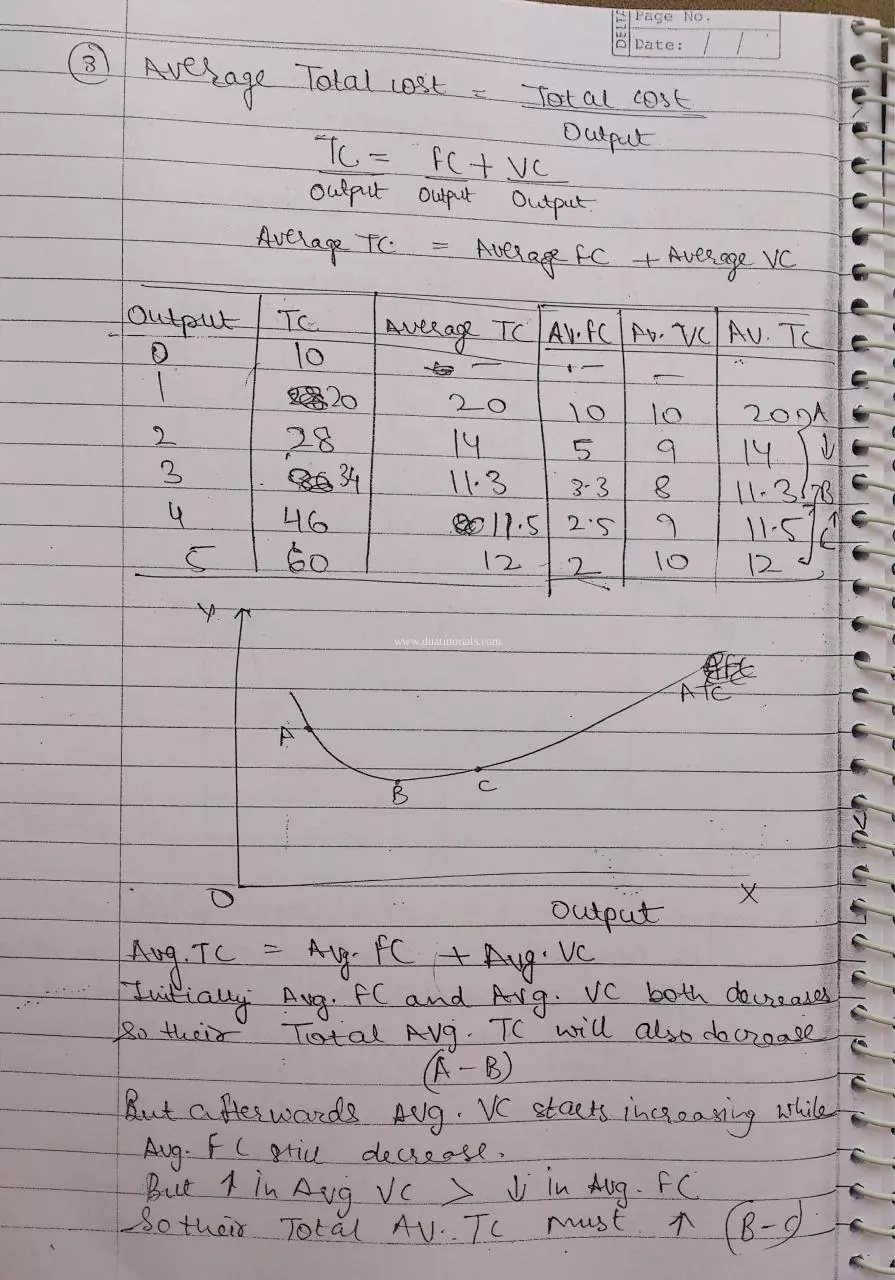 DELTA Page No.
Date: / /
③ Average Total cost = Total cost
Output
TC = FC + VC
Output Output Output
Average TC = Average FC + Average VC
Output TC Average TC AV.FC AV. VC AV. TC
0 10 — — —
1 20 20 10 10 20 A
2 28 14 5 9 14 ↓
3 34 11.3 3.3 8 11.3 B
4 46 11.5 2.5 9 11.5 C ↑
5 60 12 2 10 12
Y
www.duatutorials.com
ATC
A
B
C
O X
Output
Avg.TC = Avg. FC + Avg. VC
Initially Avg. FC and Avg. VC both decreases
So their Total Avg. TC will also decrease
(A – B)
But afterwards Avg. VC starts increasing while
Avg. FC still decrease.
But ↑ in Avg VC > ↓ in Avg. FC
So their Total AV. TC must ↑ (B–C)